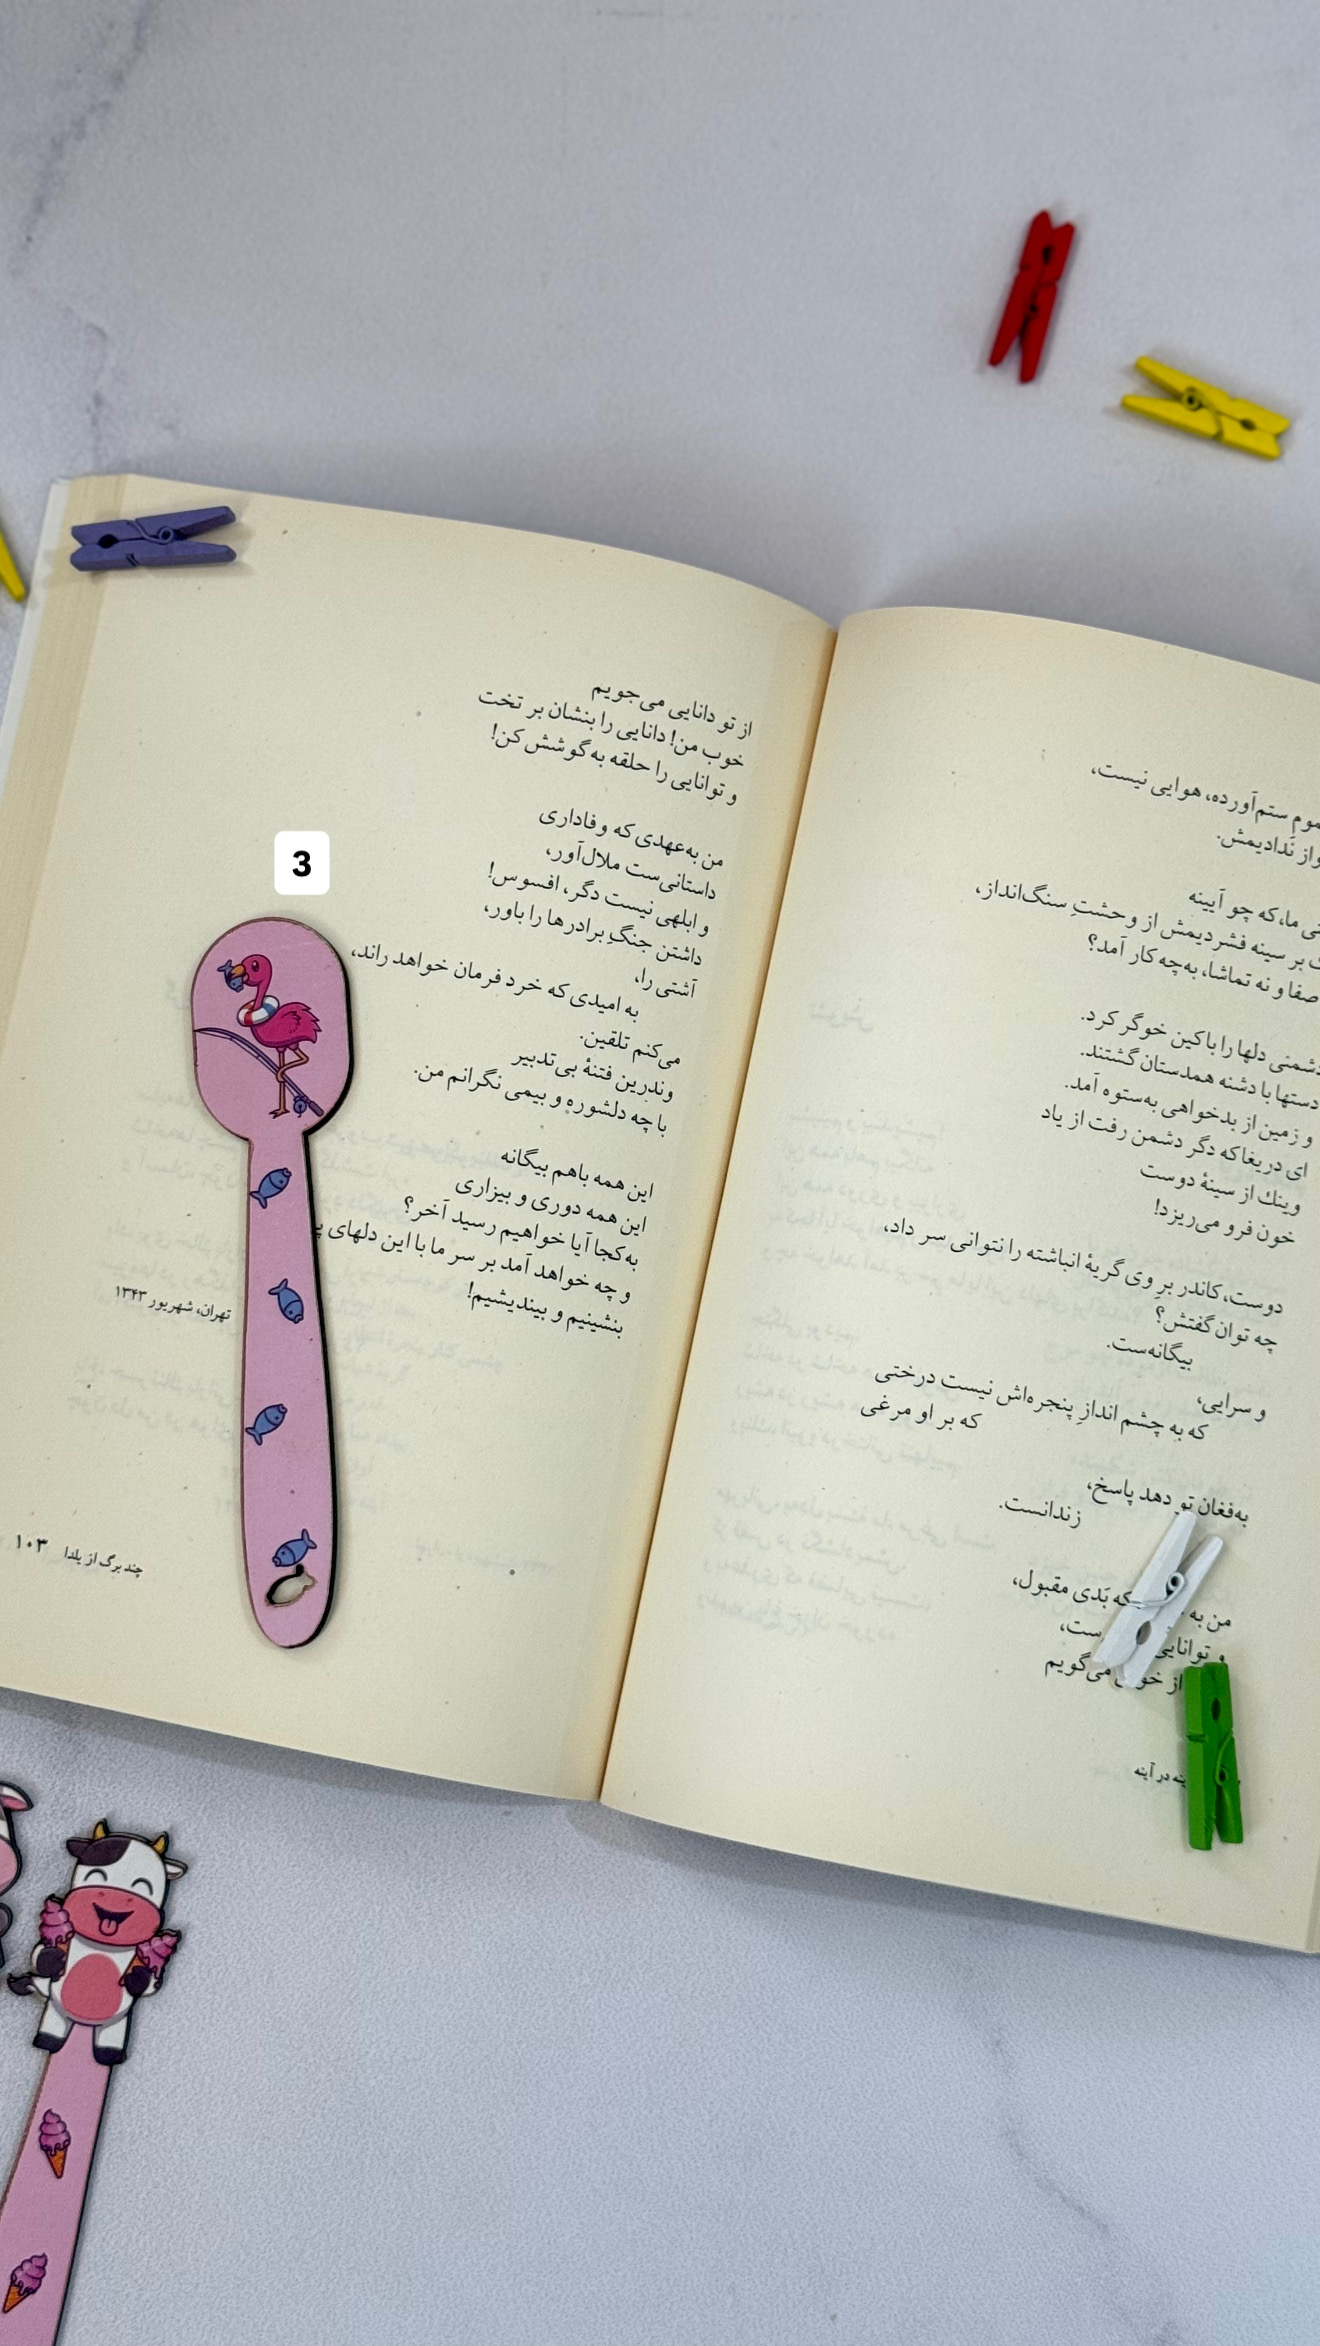 3
موم ستم‌آورده، هوایی نیست،
واز ندادیمش.
ما، که چو آیینه
بر سینه فشردیمش از وحشتِ سنگ‌انداز،
صفا و نه تماشا، به‌چه کار آمد؟
دشمنی دلها را با کین خوگر کرد.
دستها با دشنه همدستان گشتند.
و زمین از بدخواهی به‌ستوه آمد.
ای دریغا که دگر دشمن رفت از یاد
وینك از سینهٔ دوست
خون فرو می‌ریزد!
دوست، کاندر برِ وی گریهٔ انباشته را نتوانی سر داد،
چه توان گفتش؟
بیگانه‌ست.
و سرایی،
که به چشم اندازِ پنجره‌اش نیست درختی
که بر او مرغی
به‌فغان تو دهد پاسخ،
زندانست.
من به که بَدی مقبول،
و توانایی ست،
از می‌گویم
در آینه
از تو دانایی می‌جویم
خوب من! دانایی را بنشان بر تخت
و توانایی را حلقه به‌گوشش کن!
من به‌عهدی که وفاداری
داستانی‌ست ملال‌آور،
و ابلهی نیست دگر، افسوس!
داشتن جنگِ برادرها را باور،
آشتی را،
به امیدی که خرد فرمان خواهد راند،
می‌کنم تلقین.
وندرین فتنهٔ بی‌تدبیر
با چه دلشوره و بیمی نگرانم من.
این همه باهم بیگانه
این همه دوری و بیزاری
به‌کجا آیا خواهیم رسید آخر؟
و چه خواهد آمد بر سر ما با این دلهای
بنشینیم و بیندیشیم!
تهران، شهریور ۱۳۴۳
چند برگ از یلدا ۱۰۳